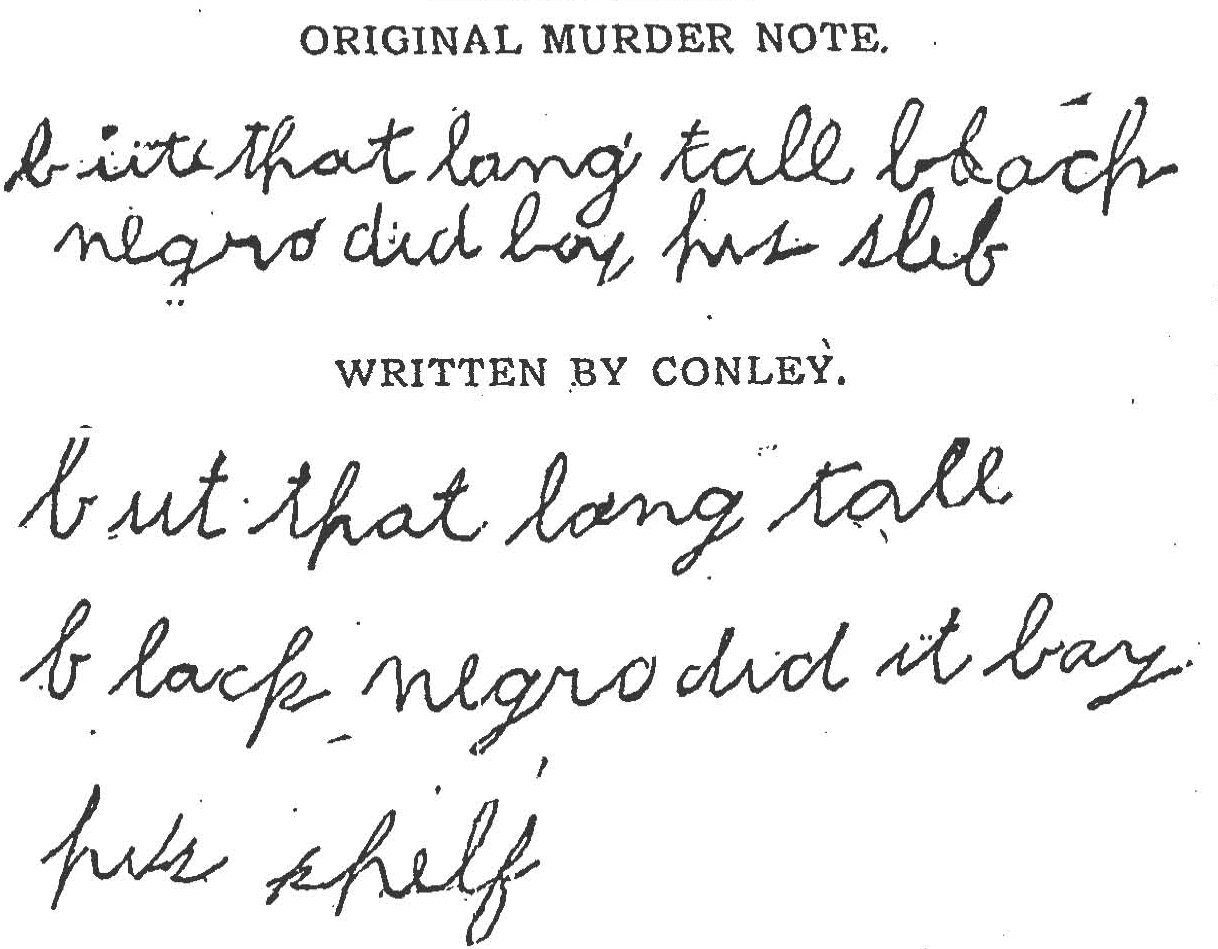 ORIGINAL MURDER NOTE.
but that long tall black
negro did boy his sleb
WRITTEN BY CONLEY.
but that long tall
black negro did it bay
his shelf